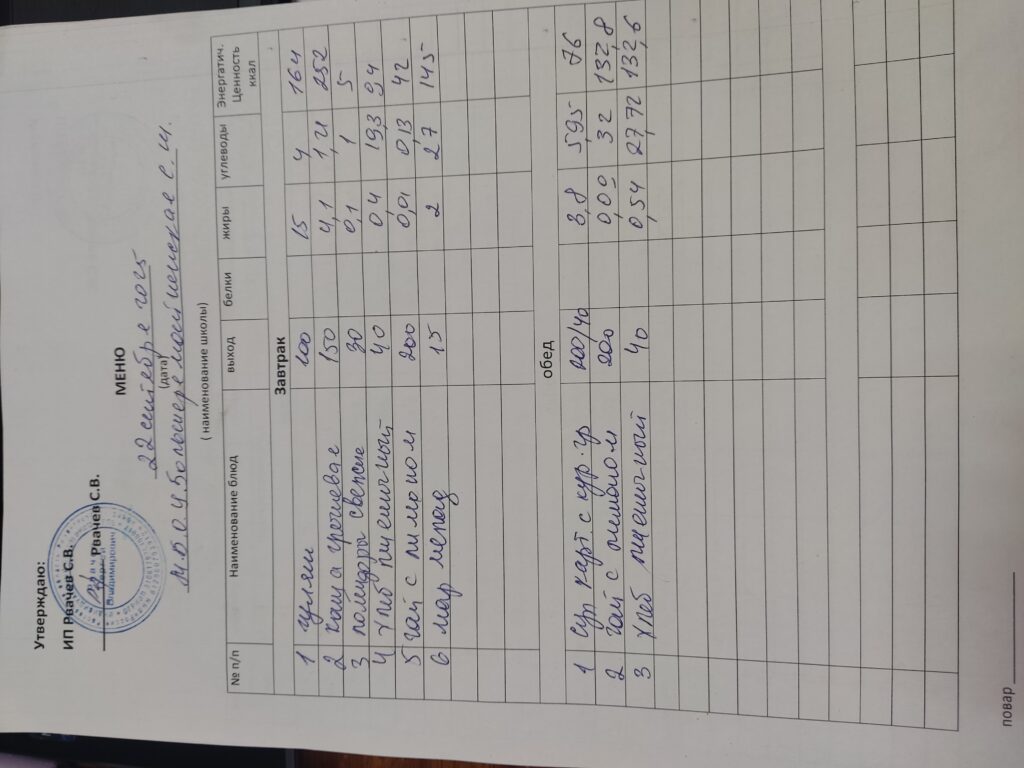 Утверждаю:
ИП Рвачев С.В.
Рвачев С.В.
МЕНЮ
22 сентября 2025
(дата)
М.Б.О.У. с. ш.
( наименование школы)
№ п/п Наименование блюд выход белки жиры углеводы Энергатич. Ценность ккал
Завтрак
1 гуляш 100 15 4 164
2 Каша гречневая 150 4,1 1,21 252
3 помидоры свежие 30 0,1 1 5
4 хлеб пшеничный 40 04 19,3 94
5 чай с лимоном 200 0,01 0,13 42
6 15 2 2,7 145
обед
1 Суп карт. с кур. гр 200/40 3,8 5,95 76
2 чай с лимоном 200 0,00 32 132,8
3 хлеб пшеничный 40 0,54 27,72 132,6
повар